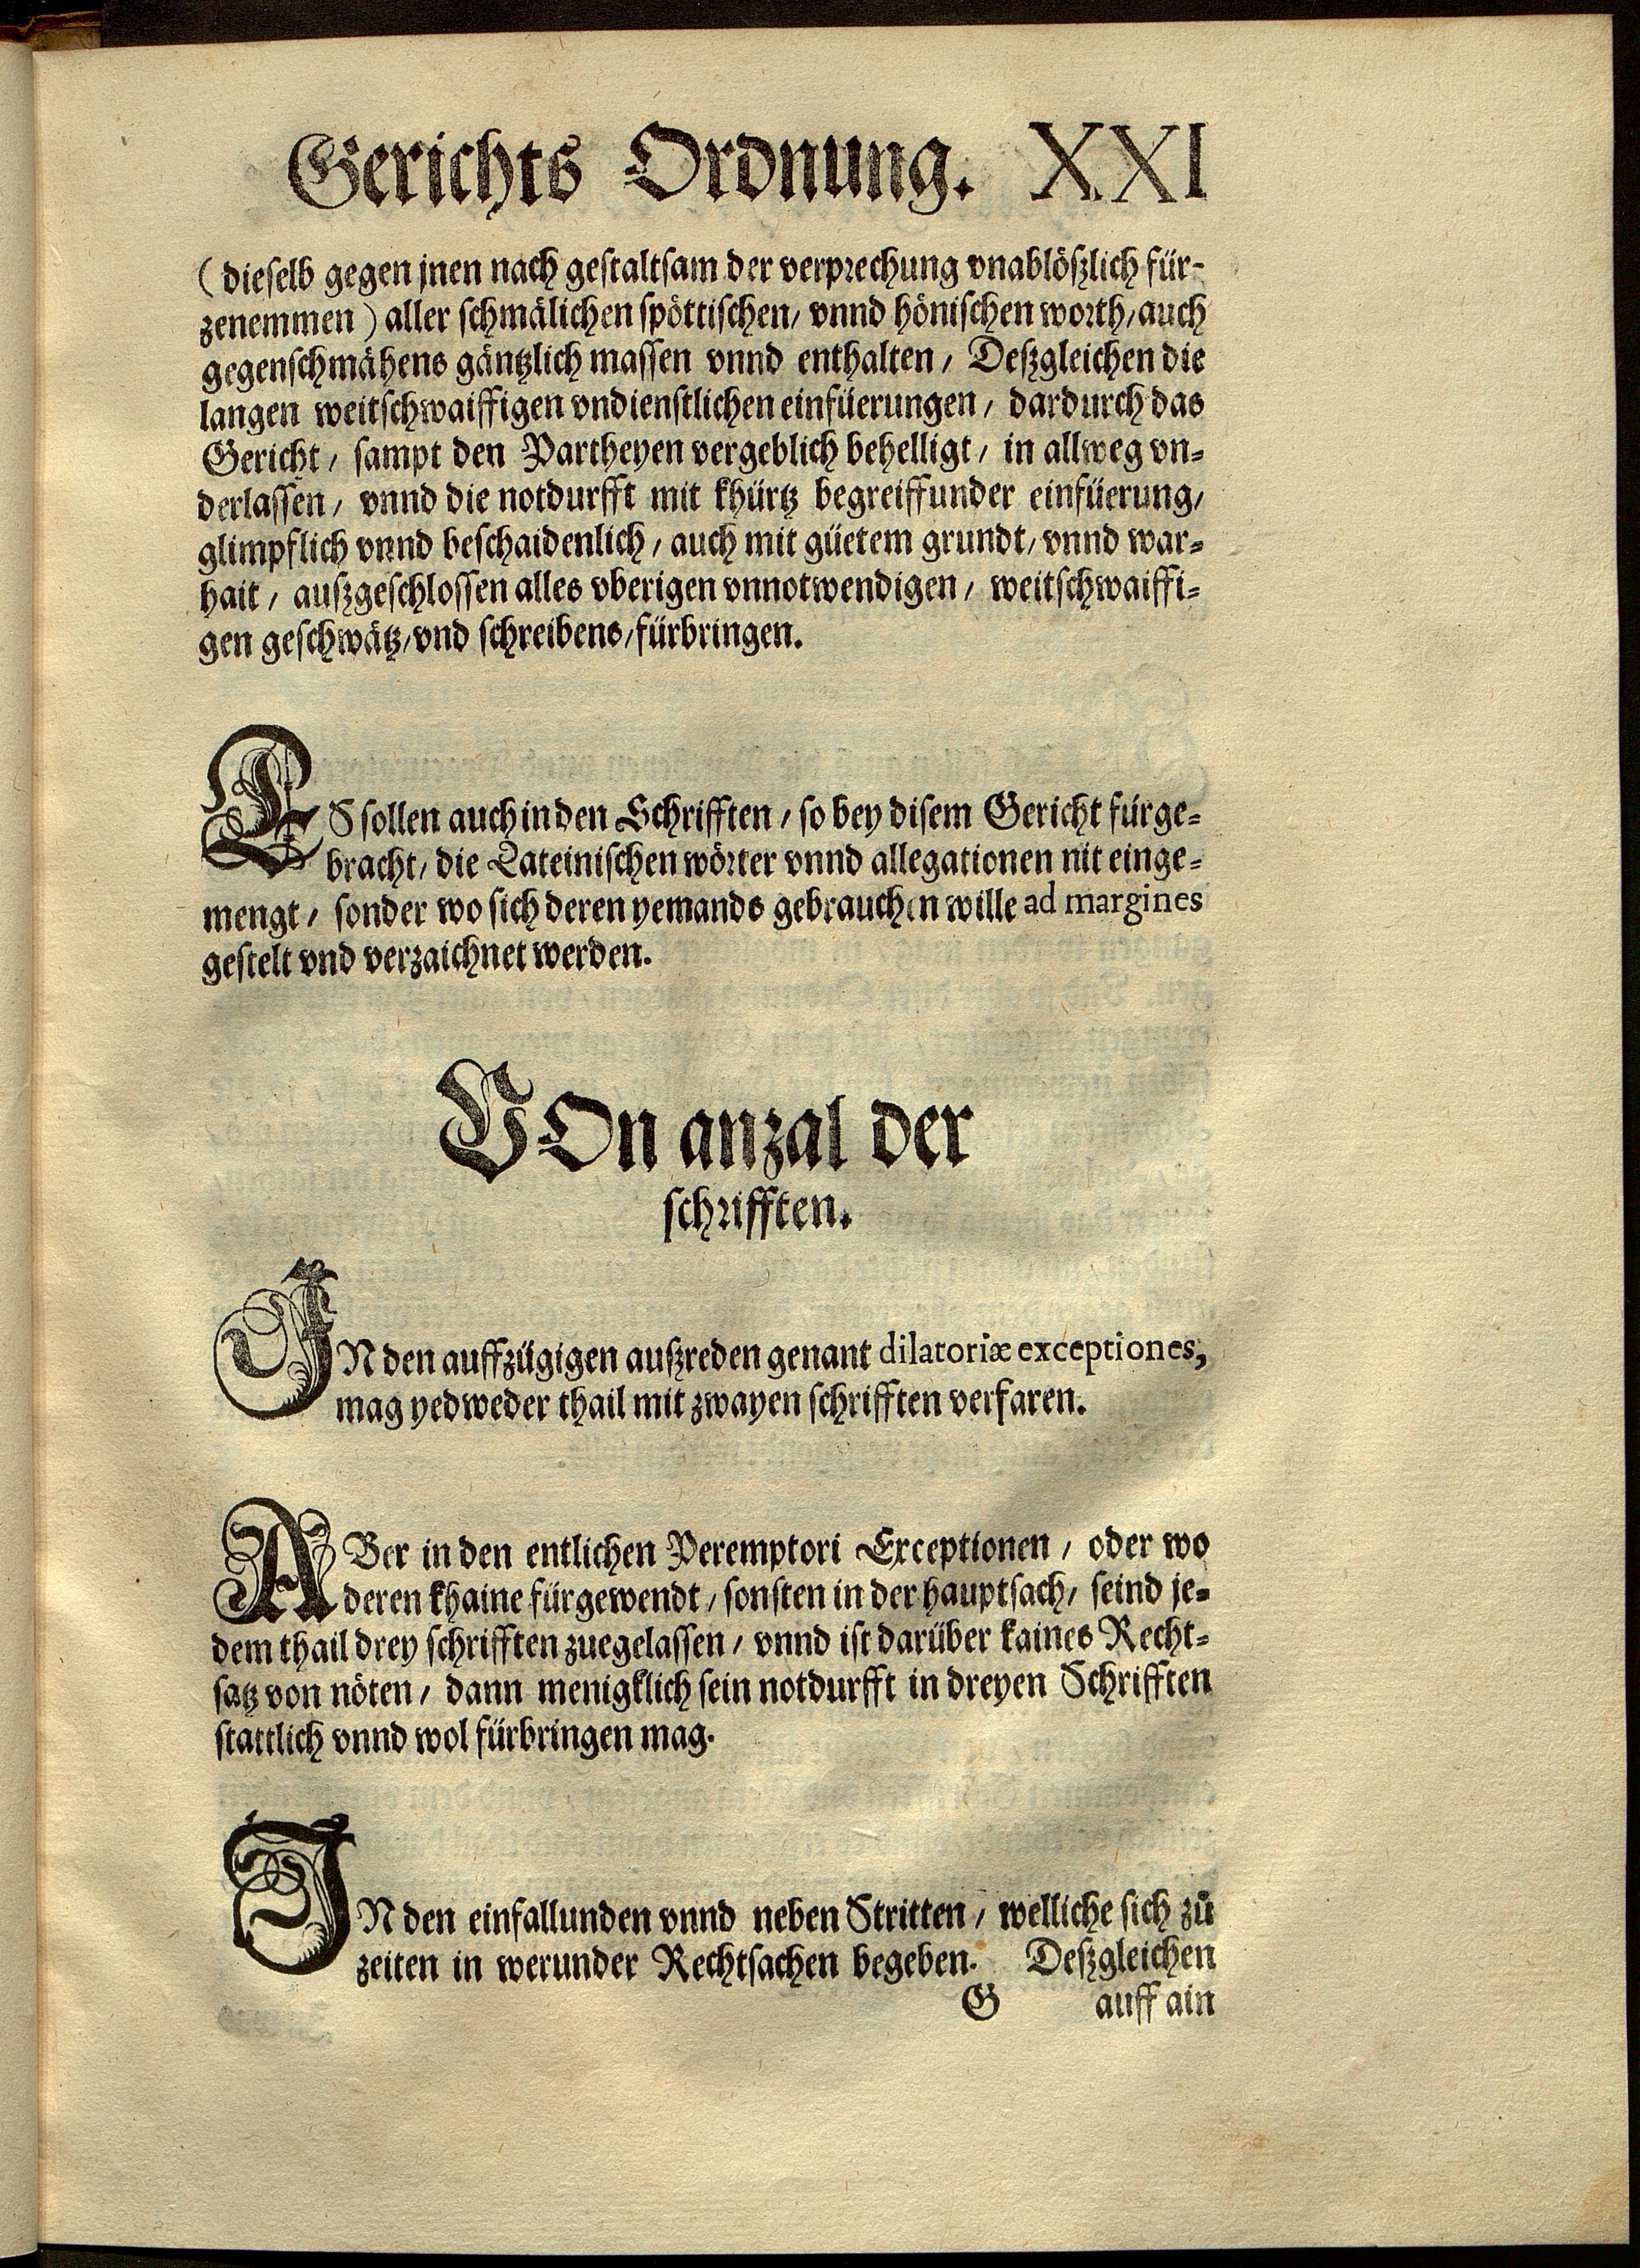 Gerichts Ordnung. XXI
(dieselb gegen jnen nach gestaltsam der verprechung vnablößlich für-
zenemmen) aller schmälichen spöttischen / vnnd hönischen worth / auch
gegenschmähens gäntzlich massen vnnd enthalten / Deßgleichen die
langen weitschwaiffigen vndienstlichen einfüerungen / dardurch das
Gericht / sampt den Partheyen vergeblich behelligt / in allweg vn-
derlassen / vnnd die notdurfft mit khürtz begreiffunder einfüerung /
glimpflich vnnd beschaidenlich / auch mit güetem grundt / vnnd war-
hait / außgeschlossen alles vberigen vnnotwendigen / weitschwaiffi-
gen geschwätz / vnd schreibens / fürbringen.
ES sollen auch in den Schrifften / so bey disem Gericht fürge-
bracht / die Lateinischen wörter vnnd allegationen nit einge-
mengt / sonder wo sich deren yemands gebrauchen wille ad margines
gestelt vnd verzaichnet werden.
VOn anzal der
schrifften.
IN den auffzügigen außreden genant dilatoriæ exceptiones,
mag yedweder thail mit zwayen schrifften verfaren.
ABer in den entlichen Peremptori Exceptionen / oder wo
deren khaine fürgewendt / sonsten in der hauptsach / seind je-
dem thail drey schrifften zuegelassen / vnnd ist darüber kaines Recht-
satz von nöten / dann menigklich sein notdurfft in dreyen Schrifften
stattlich vnnd wol fürbringen mag.
IN den einfallunden vnnd neben Stritten / welliche sich zů
zeiten in werunder Rechtsachen begeben. Deßgleichen
G auff ain